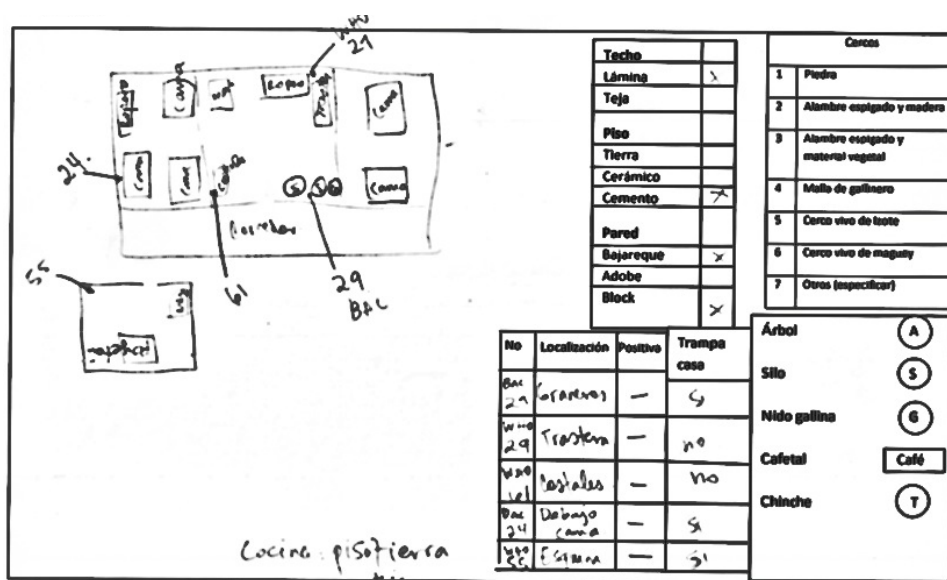 29
Ropa
Cama
Cama
24.
Cama
Cama
Cama
S
Corredor
55
61
29
BAC
Techo
Lámina x
Teja
Piso
Tierra
Cerámico
Cemento x
Pared
Bajareque x
Adobe
Block x
Cercos
1 Piedra
2 Alambre espigado y madera
3 Alambre espigado y
material vegetal
4 Malla de gallinero
5 Cerco vivo de Izote
6 Cerco vivo de maguey
7 Otros (especificar)
No Localización Positivo Trampa
casa
Bac
29 Graneros — si
29 Trastera — no
Costales — no
Bac
24 Debajo
cama — si
55 Esquina — si
Árbol A
Silo S
Nido gallina G
Cafetal Café
Chinche T
Cocina piso tierra